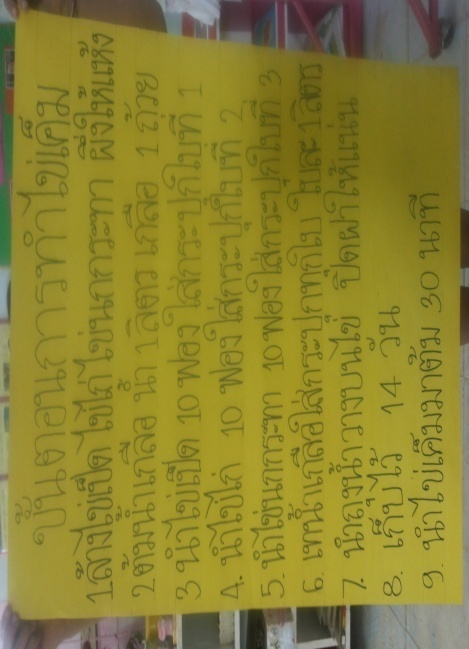 ขั้นตอนการทำไข่เค็ม
1.ล้างไข่เป็ด ไข่ไก่ ไข่นกกระทา ผึ่งให้แห้ง
2.ต้มน้ำเกลือ น้ำ 1 ลิตร เกลือ 1 ถ้วย
3. นำไข่เป็ด 10 ฟอง ใส่กระปุกใบที่ 1
4. นำไข่ไก่ 10 ฟอง ใส่กระปุกใบที่ 2
5. นำไข่นกกระทา 10 ฟอง ใส่กระปุกใบที่ 3
6. เทน้ำเกลือใส่กระปุกทุกใบ ใบละ 1 ลิตร
7. นำถุงน้ำวางบนไข่ ปิดฝาให้แน่น
8. เก็บไว้ 14 วัน
9. นำไข่เค็มมาต้ม 30 นาที